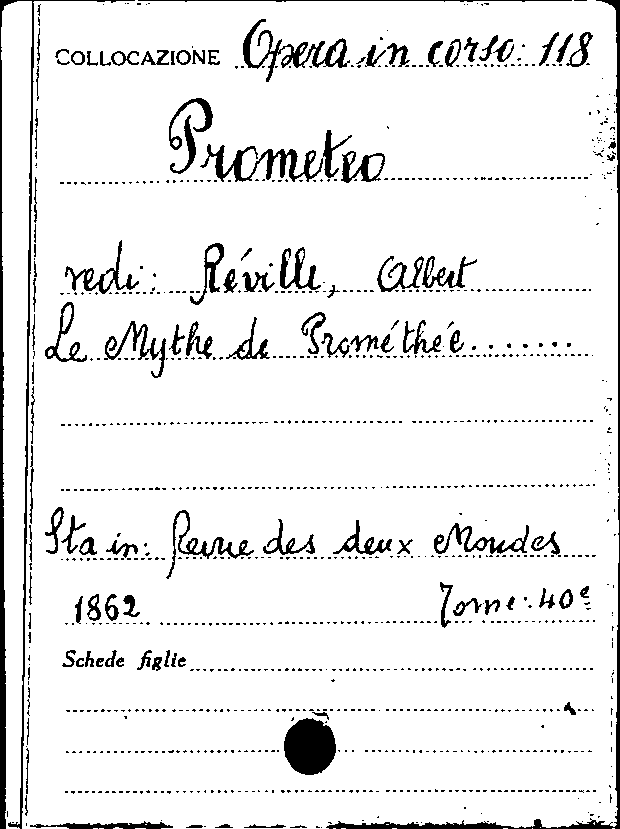 COLLOCAZIONE Opera in corso: 118
Prometeo
vedi: Réville, Albert
Le Mythe de Prométhée.......
Sta in: Revue des deux Mondes
1862 Tome: 40e
Schede figlie